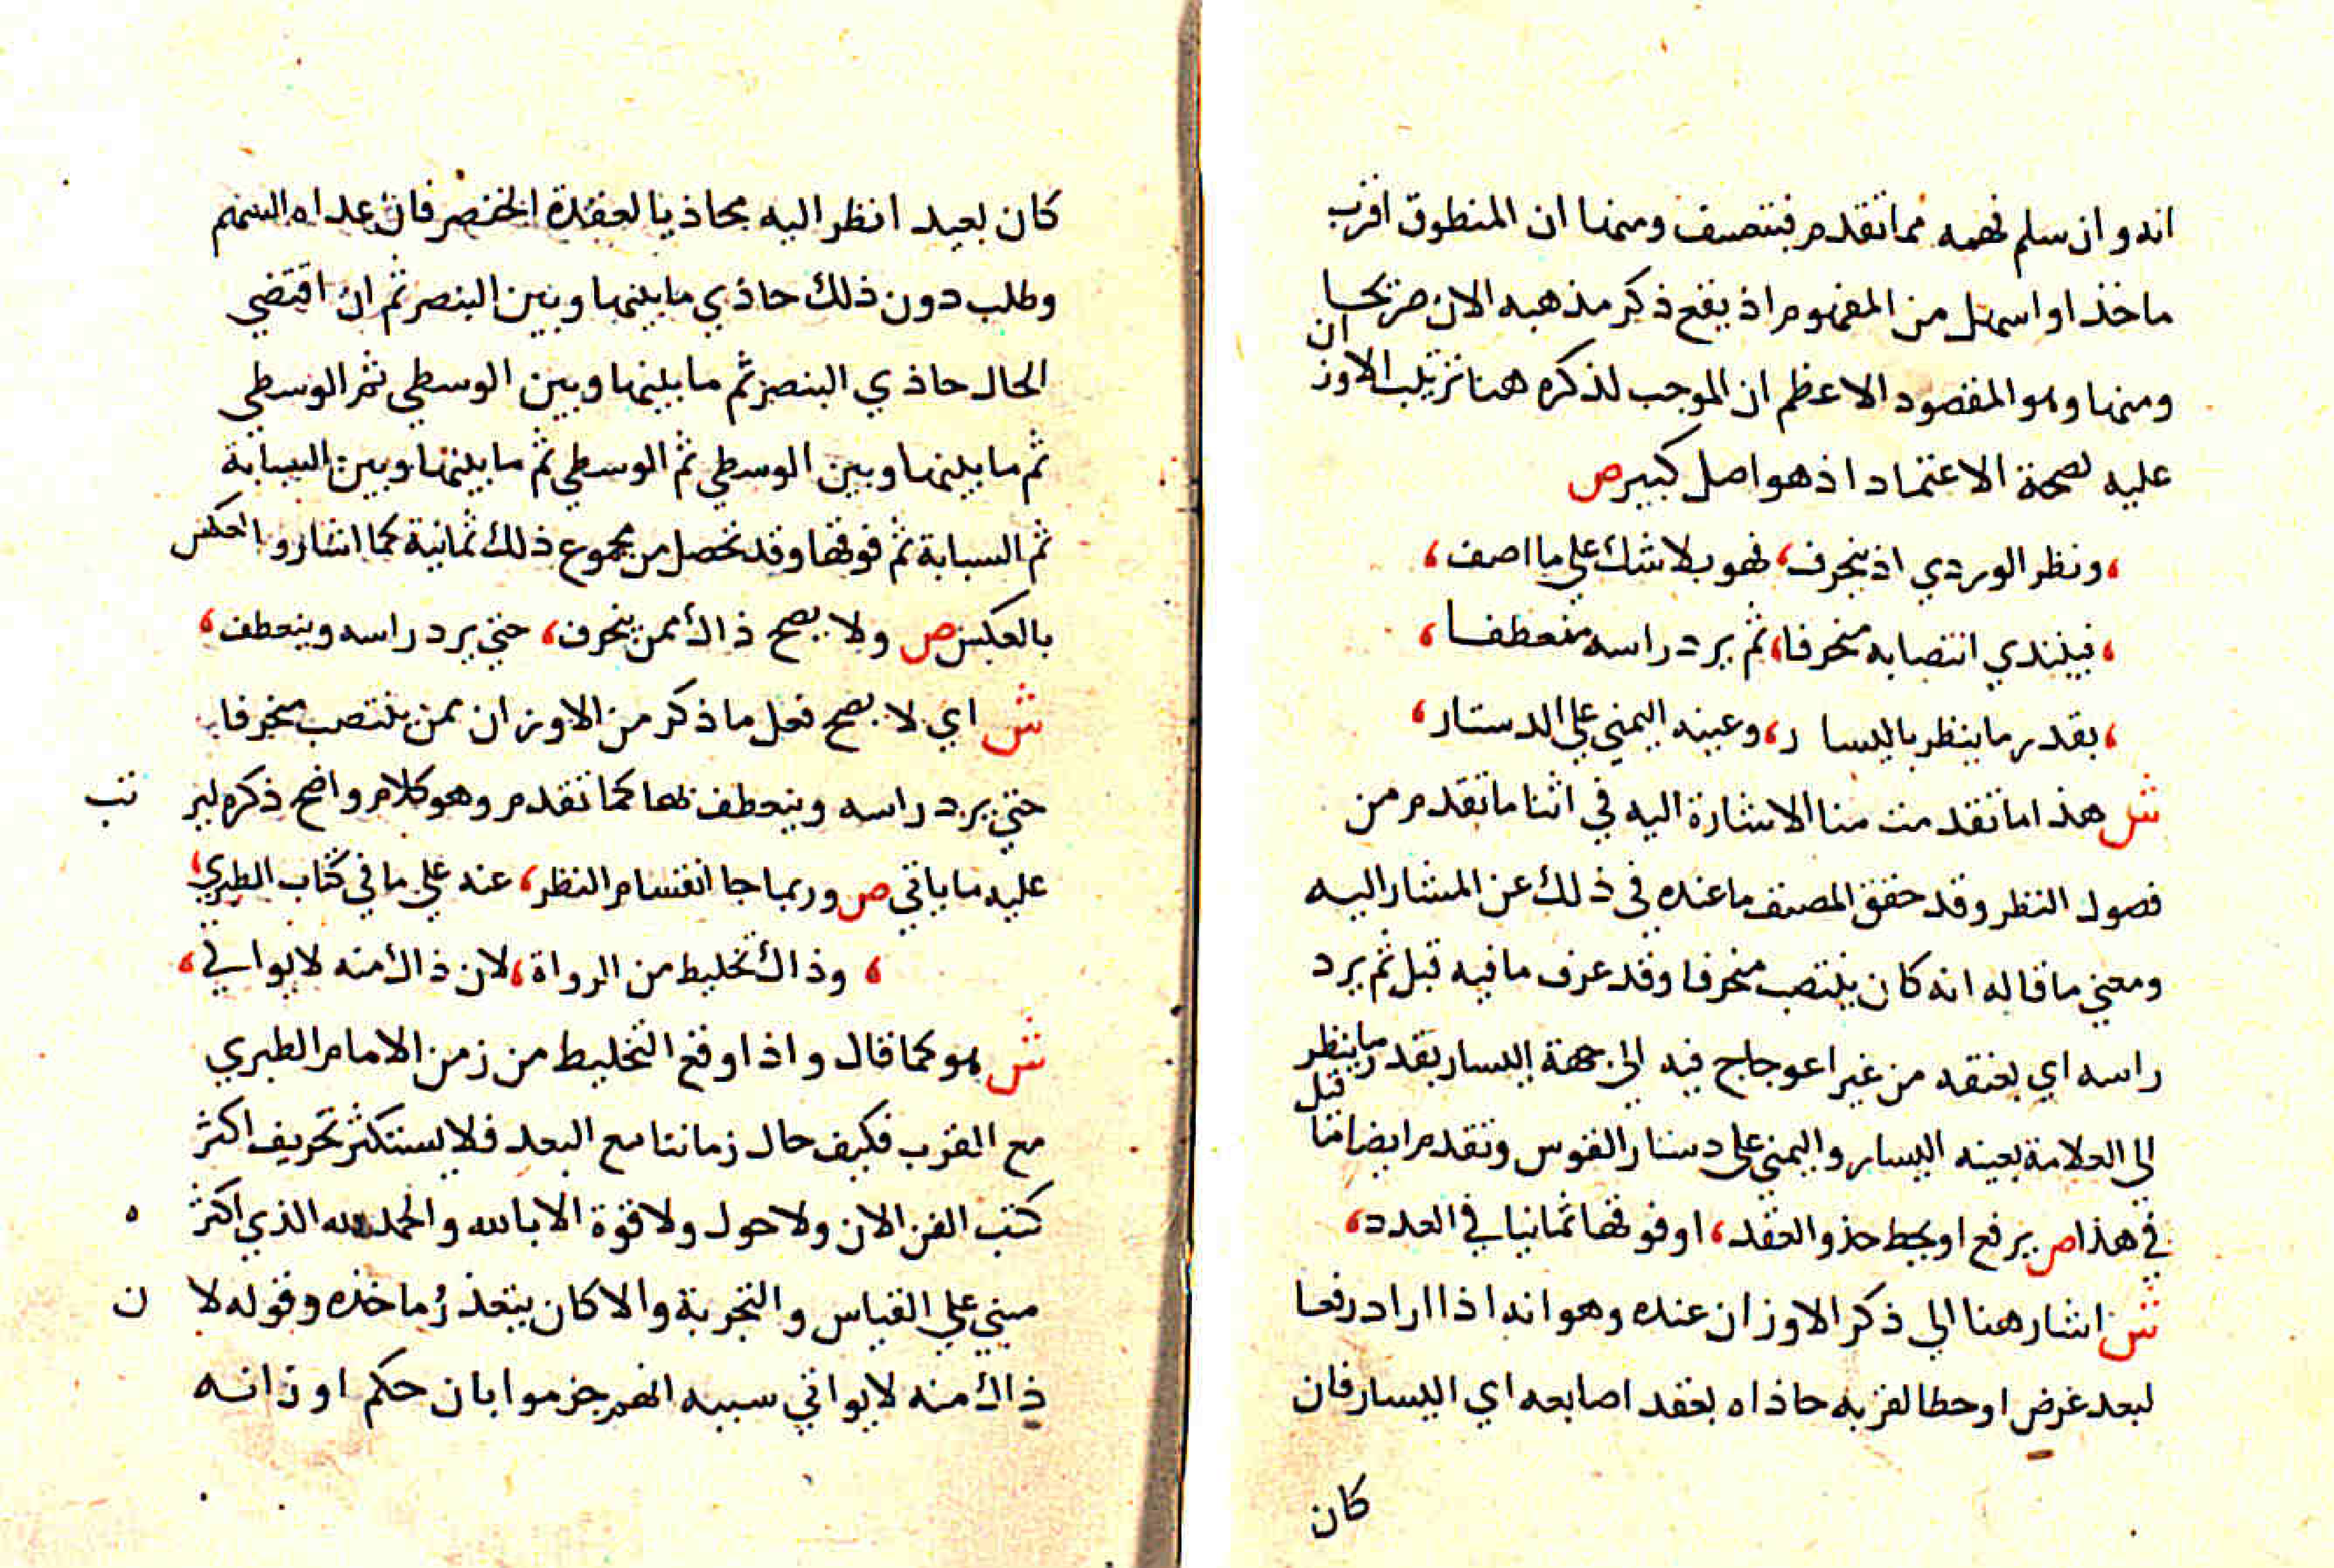 انه وان سلم فهمه مما تقدم فبتعسف ومنها ان المنطوق اقرب
ماخذا واسهل من المفهوم اذ يقع ذكر مذهبه الان صريحا
ومنها وهو المقصود الاعظم ان الموجب لذكره هنا ترتيب الاوزان
عليه لصحة الاعتماد اذ هو اصل كبير ص
، ونظر الوردي اذ ينحرف، فهو بلا شك على ما اصف،
، فيبتدي انتصابه منحرفا، ثم يرد راسه منعطفا،
، بقدر ما ينظر باليسار، وعينه اليمني علي الدستار،
ش هذا ما تقدمت منا الاشارة اليه في اثنا ما تقدم من
فصول النظر وقد حقق المصنف ما عنده في ذلك عن المشار اليه
ومعني ما قاله انه كان ينتصب منحرفا وقد عرف ما فيه قبل ثم يرد
راسه اي بعنقه من غير اعوجاج فيه الي جهة اليسار بقدر ما ينظر
الي العلامة بعينه اليسار واليمني على دستار القوس وتقدم ايضا ما قبل
في هذا ص يرفع او يحط حذو العقد، او فوقها ثمانيا في العدد،
ش اشار هنا الي ذكر الاوزان عنده وهو انه اذا اراد رفعا
لبعد غرض او حطا لقربه حاذاه بعقد اصابعه اي اليسار فان
كان
كان بعيدا نظر اليه محاذيا لعقدة الخنصر فان عداه السهم
وطلب دون ذلك حاذي ما بينها وبين البنصر ثم ان اقتضي
الحال حاذي البنصر ثم ما بينها وبين الوسطي ثم الوسطي
ثم ما بينها وبين الوسطي ثم الوسطي ثم ما بينها وبين السبابة
ثم السبابة ثم فوقها وقد تحصل من مجموع ذلك ثمانية كما اشار والعكس
بالعكس ص ولا يصح ذاك ممن ينحرف، حتي يرد راسه وينعطف،
ش اي لا يصح فعل ما ذكر من الاوزان ممن ينتصب منحرفا
حتي يرد راسه وينعطف لها كما تقدم وهو كلام واضح ذكره ليرتب
عليه ما ياتي ص وربما جا انقسام النظر، عنه علي ما في كتاب الطبري،
، وذاك تخليط من الرواة، لان ذاك منه لا يواتي،
ش هو كما قال واذا وقع التخليط من زمن الامام الطبري
مع القرب فكيف حال زماننا مع البعد فلا يستكثر تحريف اكثر
كتب الفن الان ولا حول ولا قوة الا بالله والحمد لله الذي اكثره
مبني علي القياس والتجربة والا كان يتعذر ماخذه وقوله لان
ذاك منه لا يواتي سببه انهم جزموا بان حكم اوزانه